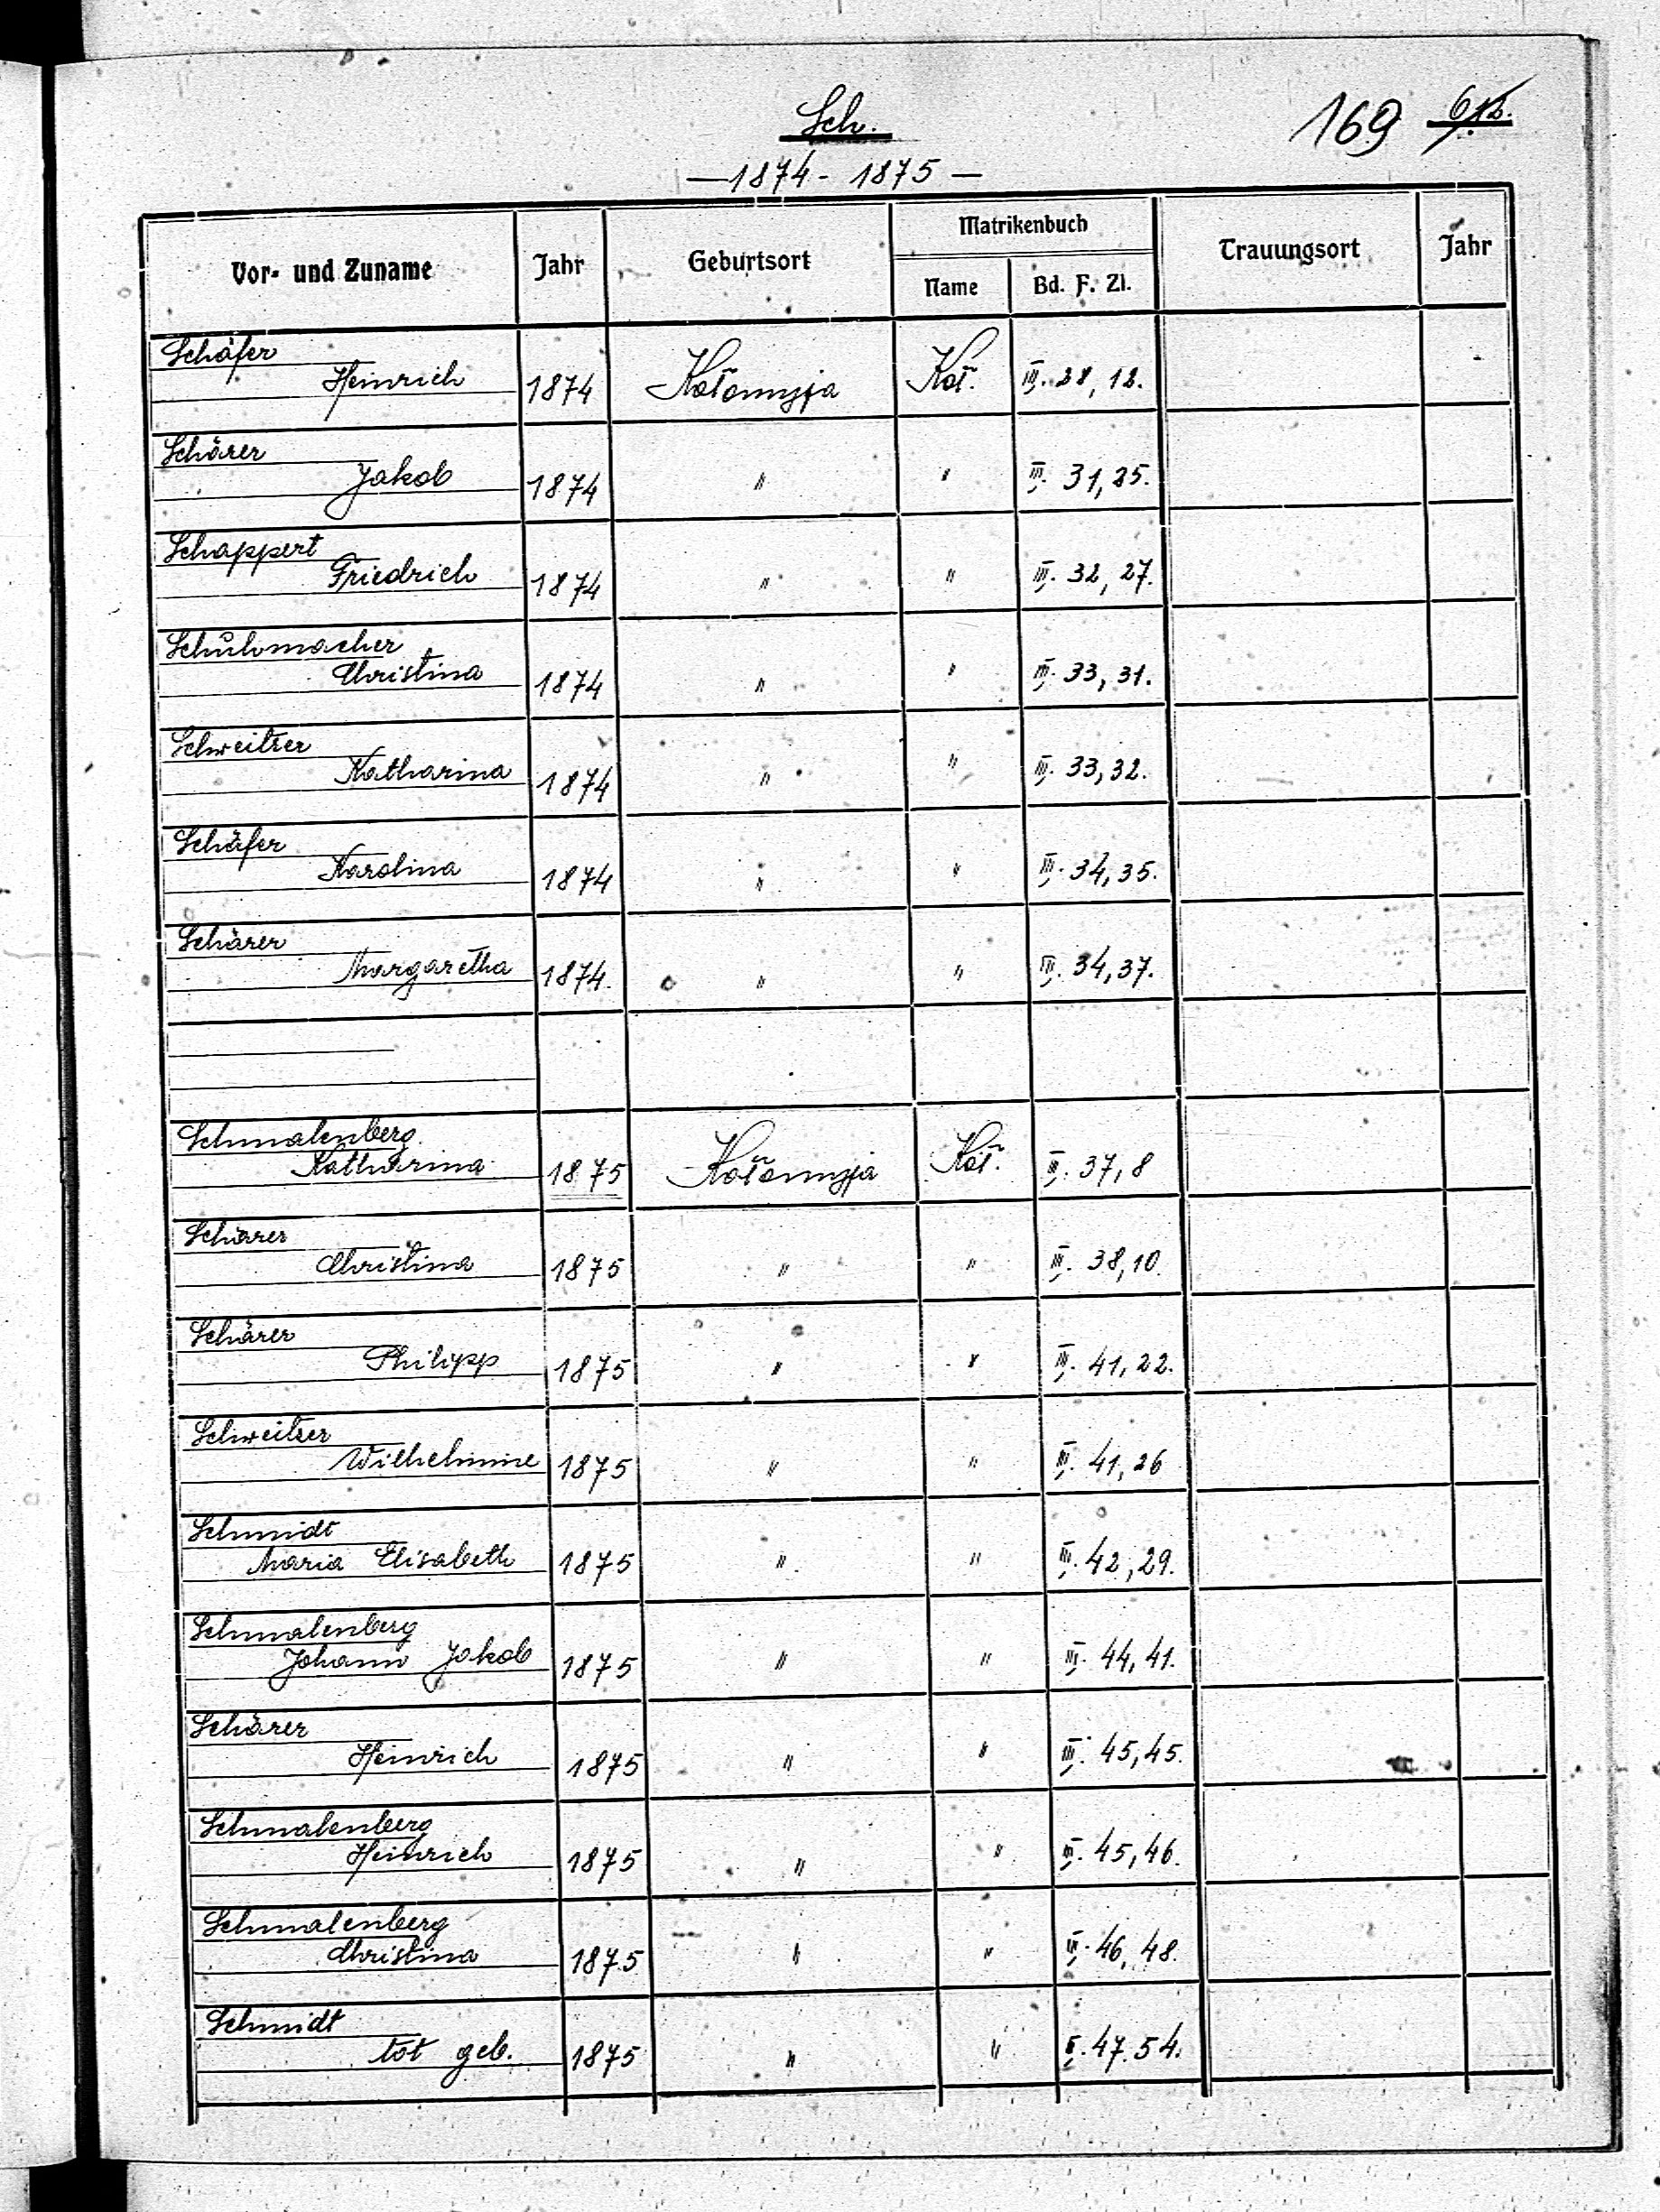 Sch.
169 612.
—1874 - 1875 —
Vor- und Zuname Jahr Geburtsort Matrikenbuch Trauungsort Jahr
Name Bd. F. Zl.
Schäfer
Heinrich 1874 Kołomyja Koł. III. 28, 12.
Schärer
Jakob 1874 " " III. 31, 25.
Schappert
Friedrich 1874 " " III. 32, 27.
Schuhmacher
Christina 1874 " " III. 33, 31.
Schweitzer
Katharina 1874 " " III. 33, 32.
Schäfer
Karolina 1874 " " III. 34, 35.
Schärer
Margaretha 1874. " " III. 34, 37.
Schmalenberg
Katharina 1875 Kołomyja Koł. III. 37, 8
Schärer
Christina 1875 " " III. 38, 10.
Schärer
Philipp 1875 " " III. 41, 22.
Schweitzer
Wilhelmine 1875 " " III. 41, 26
Schmidt
Maria Elisabeth 1875 " " III. 42, 29.
Schmalenberg
Johann Jakob 1875 " " III. 44, 41.
Schärer
Heinrich 1875 " " III. 45, 45.
Schmalenberg
Heinrich 1875 " " III. 45, 46.
Schmalenberg
Christina 1875 " " III. 46, 48.
Schmidt
tot geb. 1875 " " II. 47. 54.